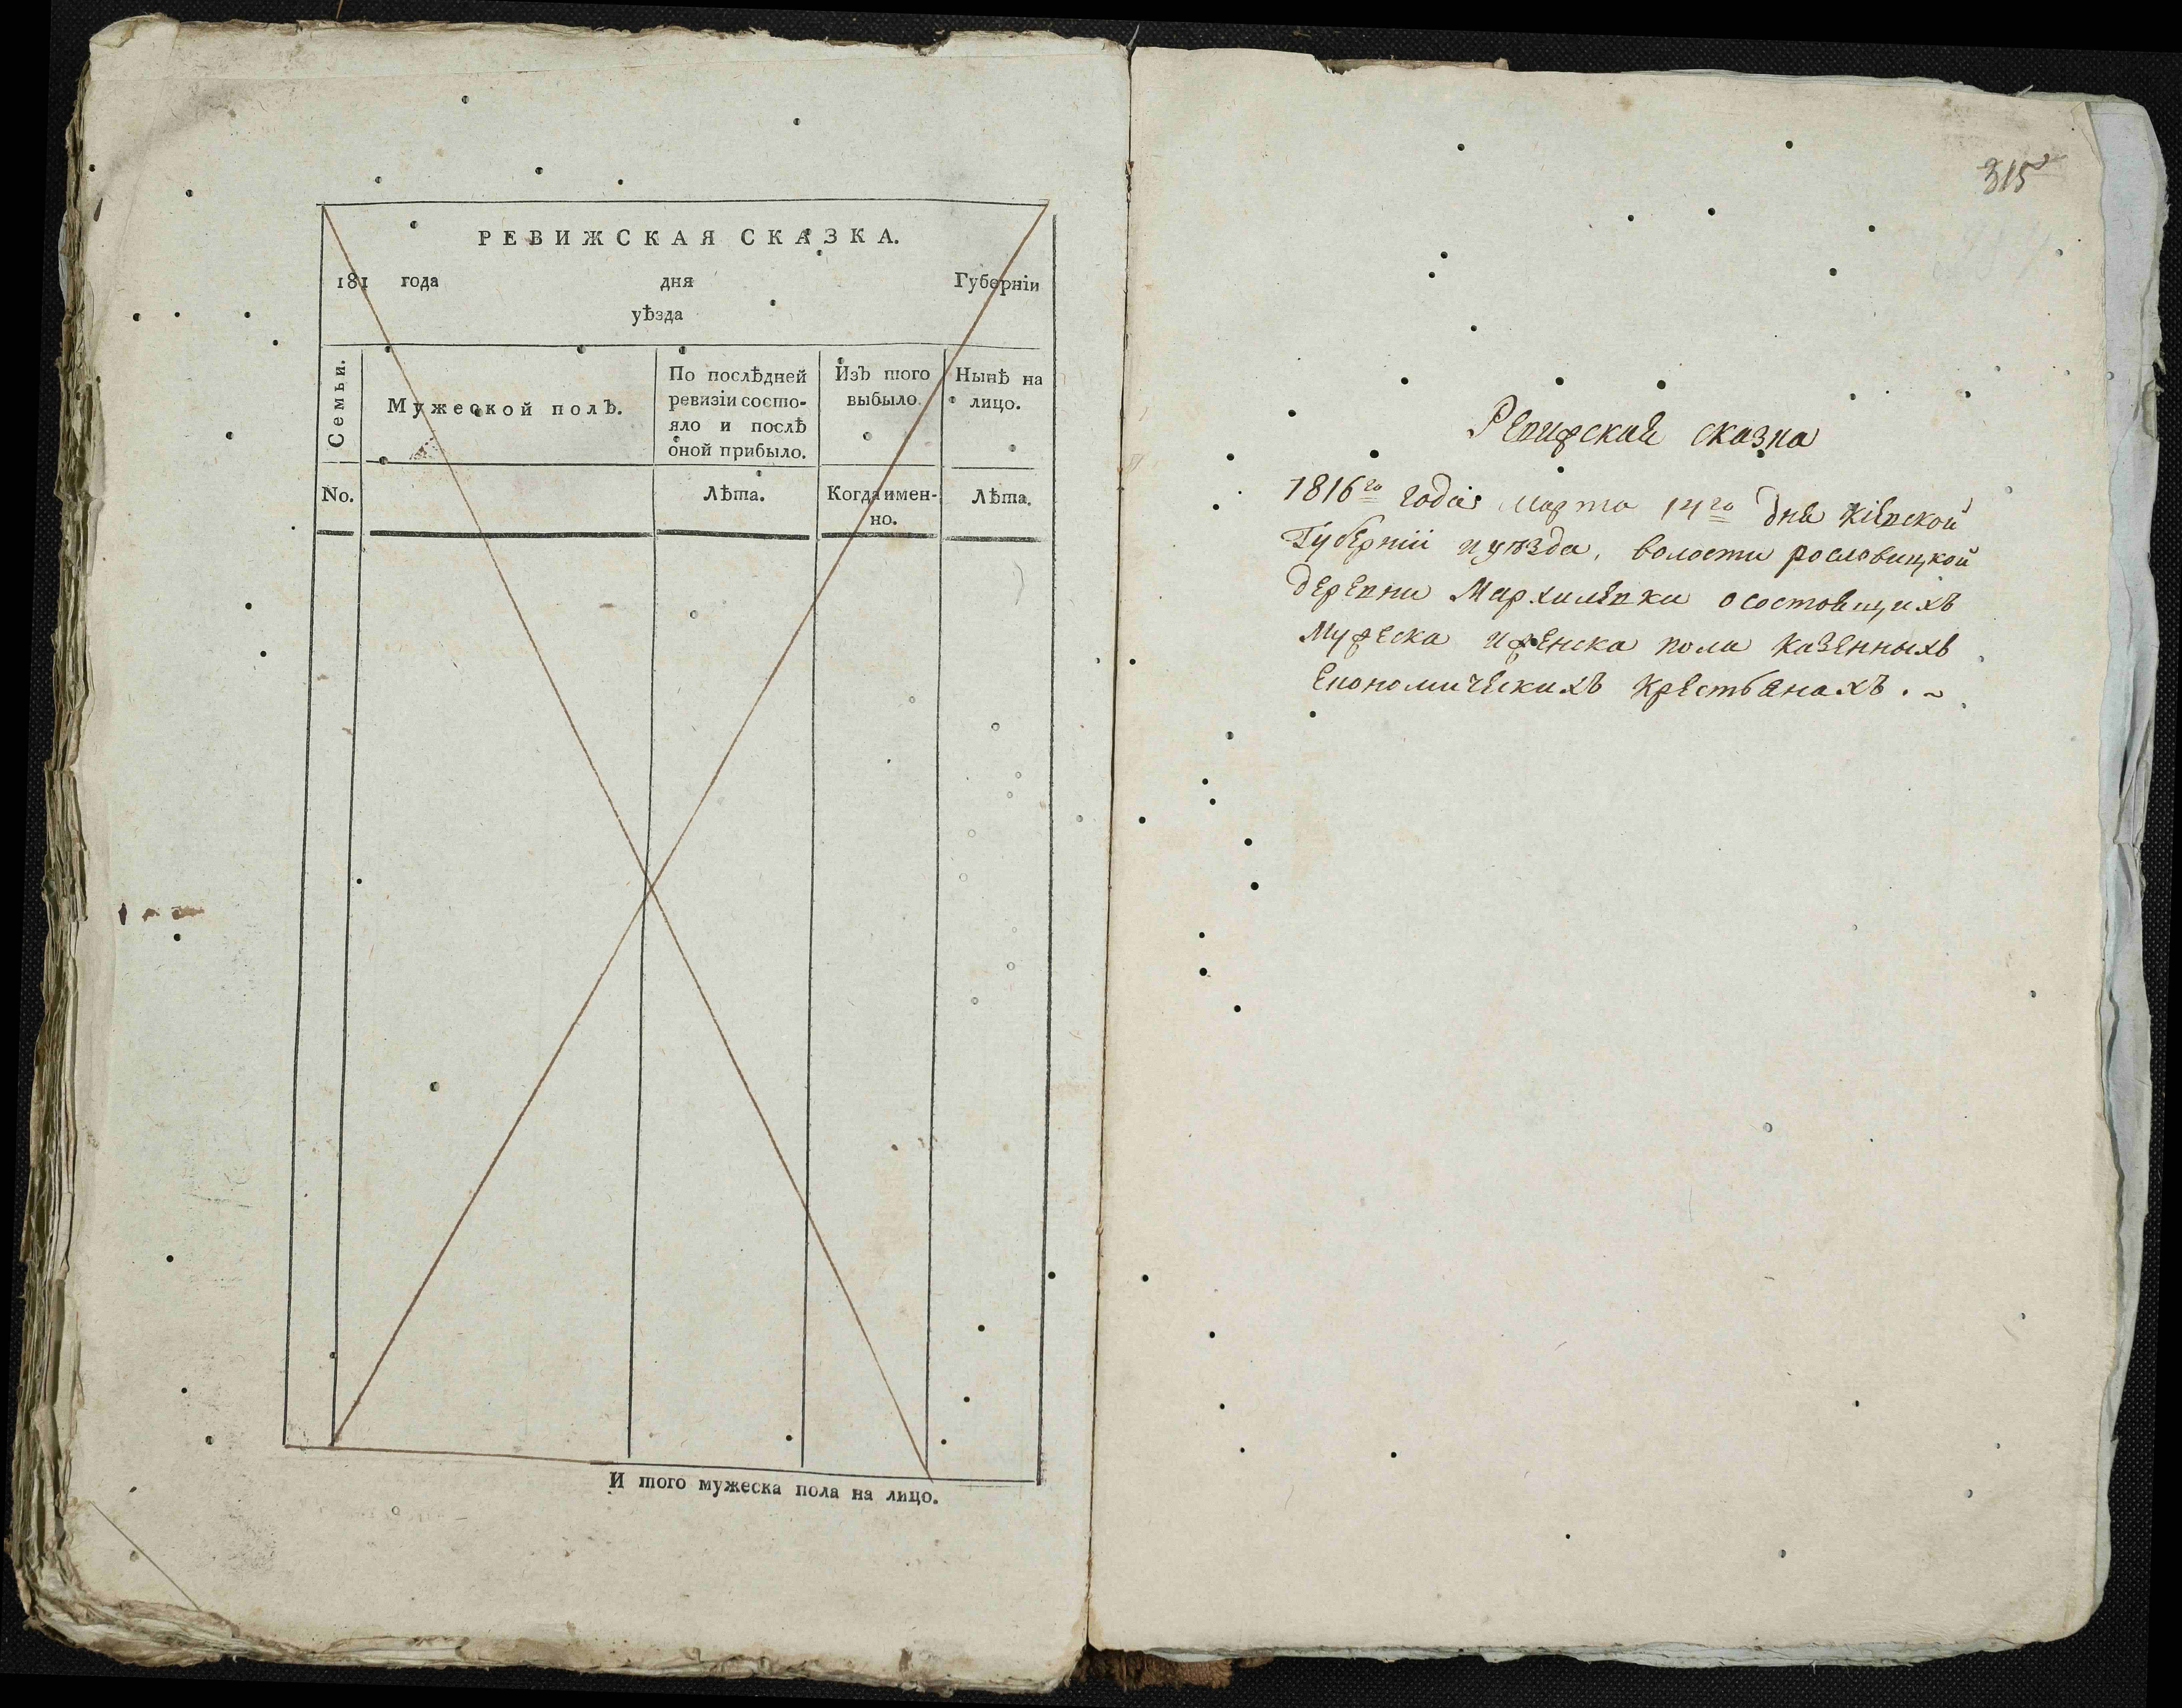 РЕВИЖСКАЯ СКАЗКА.
181 года дня Губернїи
уѣзда
Семьи.
Мужеской полъ.
По послѣдней
ревизїи состо-
яло и послѣ
оной прибыло.
Изъ того
выбыло.
Нынѣ на
лицо.
No.
Лѣта.
Когда имен-
но.
Лѣта.
И того мужеска пола на лицо.
315
Ревижская сказка
1816го года марта 14го дня Кіевской
Губерніи и уѣзда, волости рословицкой
деревни Мархилевки о состоящихъ
Мужеска и женска пола казенныхъ
економическихъ крестьянахъ.